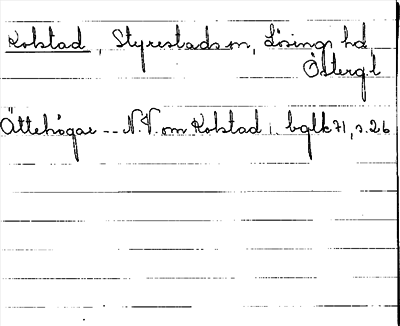 Kolstad, Styrestads sn, Lösings hd,
Östergl
Ättehögar -- N.V. om Kolstad. bglk 71, s. 26